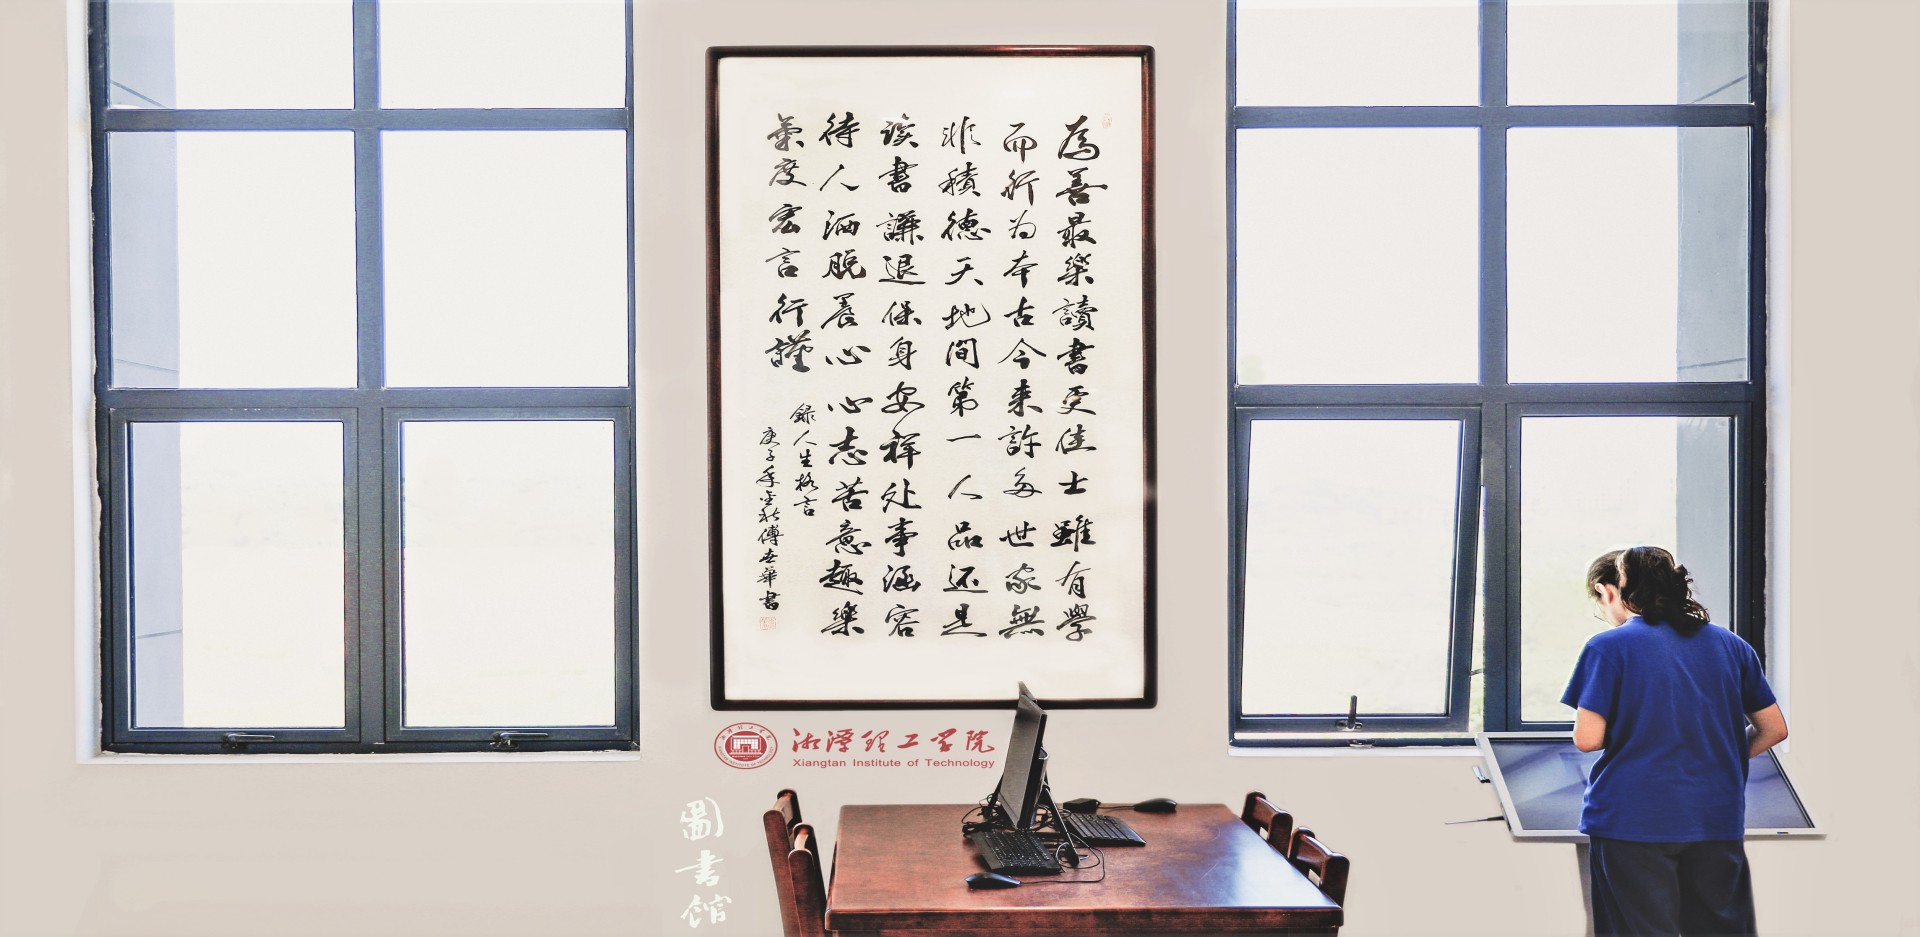 為善最樂讀書更佳士雖有學
而行为本古今来許多世家無
非積德天地间第一人品还是
读書謙退保身安祥处事涵容
待人洒脱養心心志苦意趣樂
氣度宏言行謹
錄人生格言
庚子年金秋傅世華書
湘潭理工学院
Xiangtan Institute of Technology
圖書館